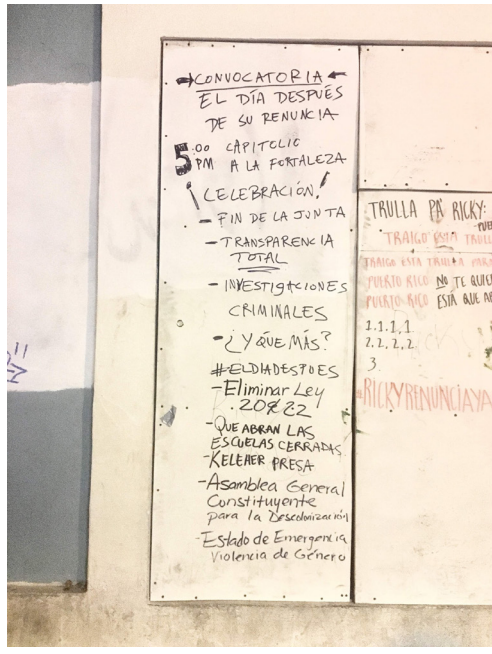 →CONVOCATORIA←
EL DÍA DESPUÉS
DE SU RENUNCIA
5:00 PM CAPITOLIO
A LA FORTALEZA
¡CELEBRACIÓN!
- FIN DE LA JUNTA
- TRANSPARENCIA
TOTAL
- INVESTIGACIONES
CRIMINALES
- ¿Y QUE MÁS?
#ELDIADESPUES
- Eliminar Ley
20 & 22
- QUE ABRAN LAS
ESCUELAS CERRADAS
- KELEHER PRESA
- Asamblea General
Constituyente
para la Descolonización
- Estado de Emergencia
Violencia de Género
TRULLA PA' RICKY:
TRAIGO ESTA
TRAIGO ESTA TRULLA
PUERTO RICO NO TE
PUERTO RICO ESTÁ QUE
1.1.1.1
2.2.2.2
3.
#RICKYRENUNCIAYA